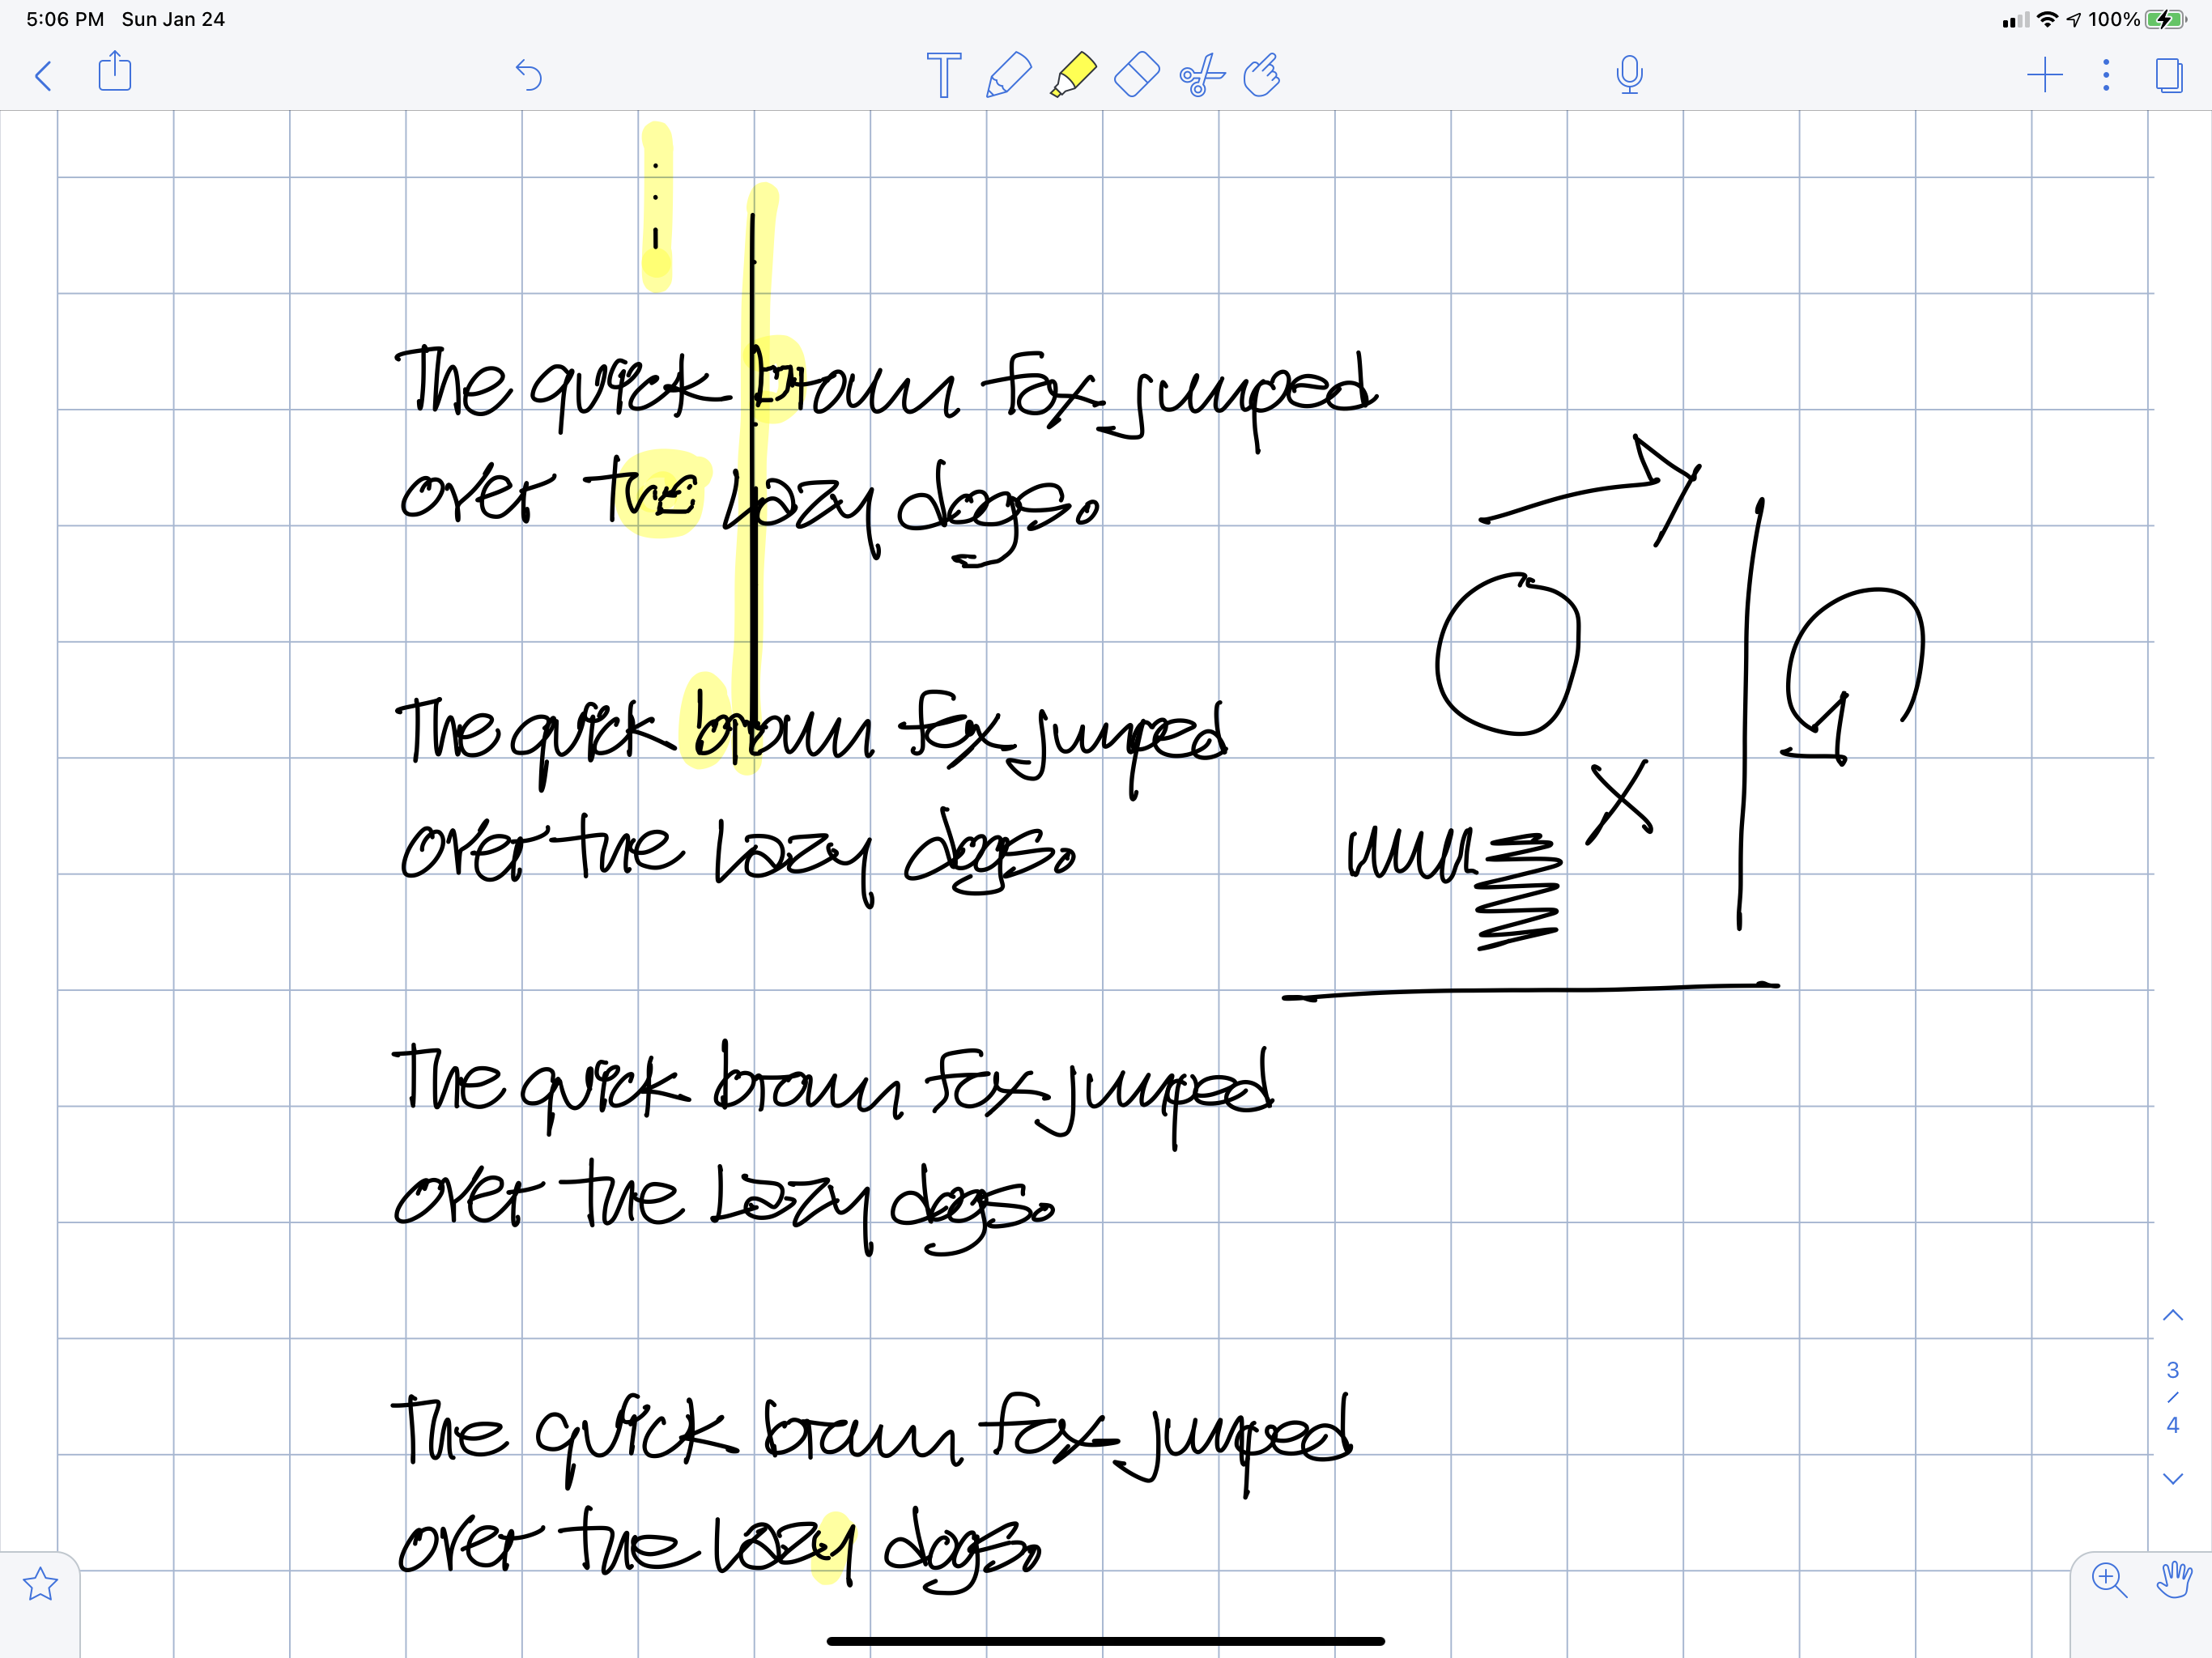 5:06 PM Sun Jan 24
100%
The quick brown fox jumped
over the lazy dogs.
The quick brown fox jumped
over the lazy dogs.
The quick brown fox jumped
over the lazy dogs.
The quick brown fox jumped
over the lazy dogs.
3
/
4